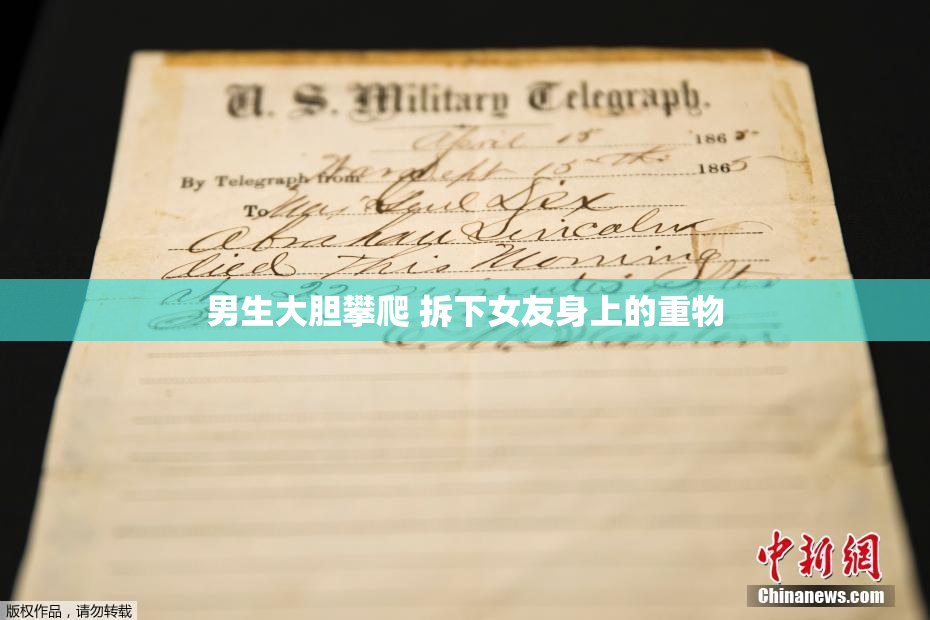 U. S. Military Telegraph.
April 15 1865.
By Telegraph from War Dept 15th 1865
To Maj Genl Dix
Abraham Lincoln
died This Morning
at 22 minutes after
男生大胆攀爬 拆下女友身上的重物
E. M. Stanton
中新网
Chinanews.com
版权作品，请勿转载